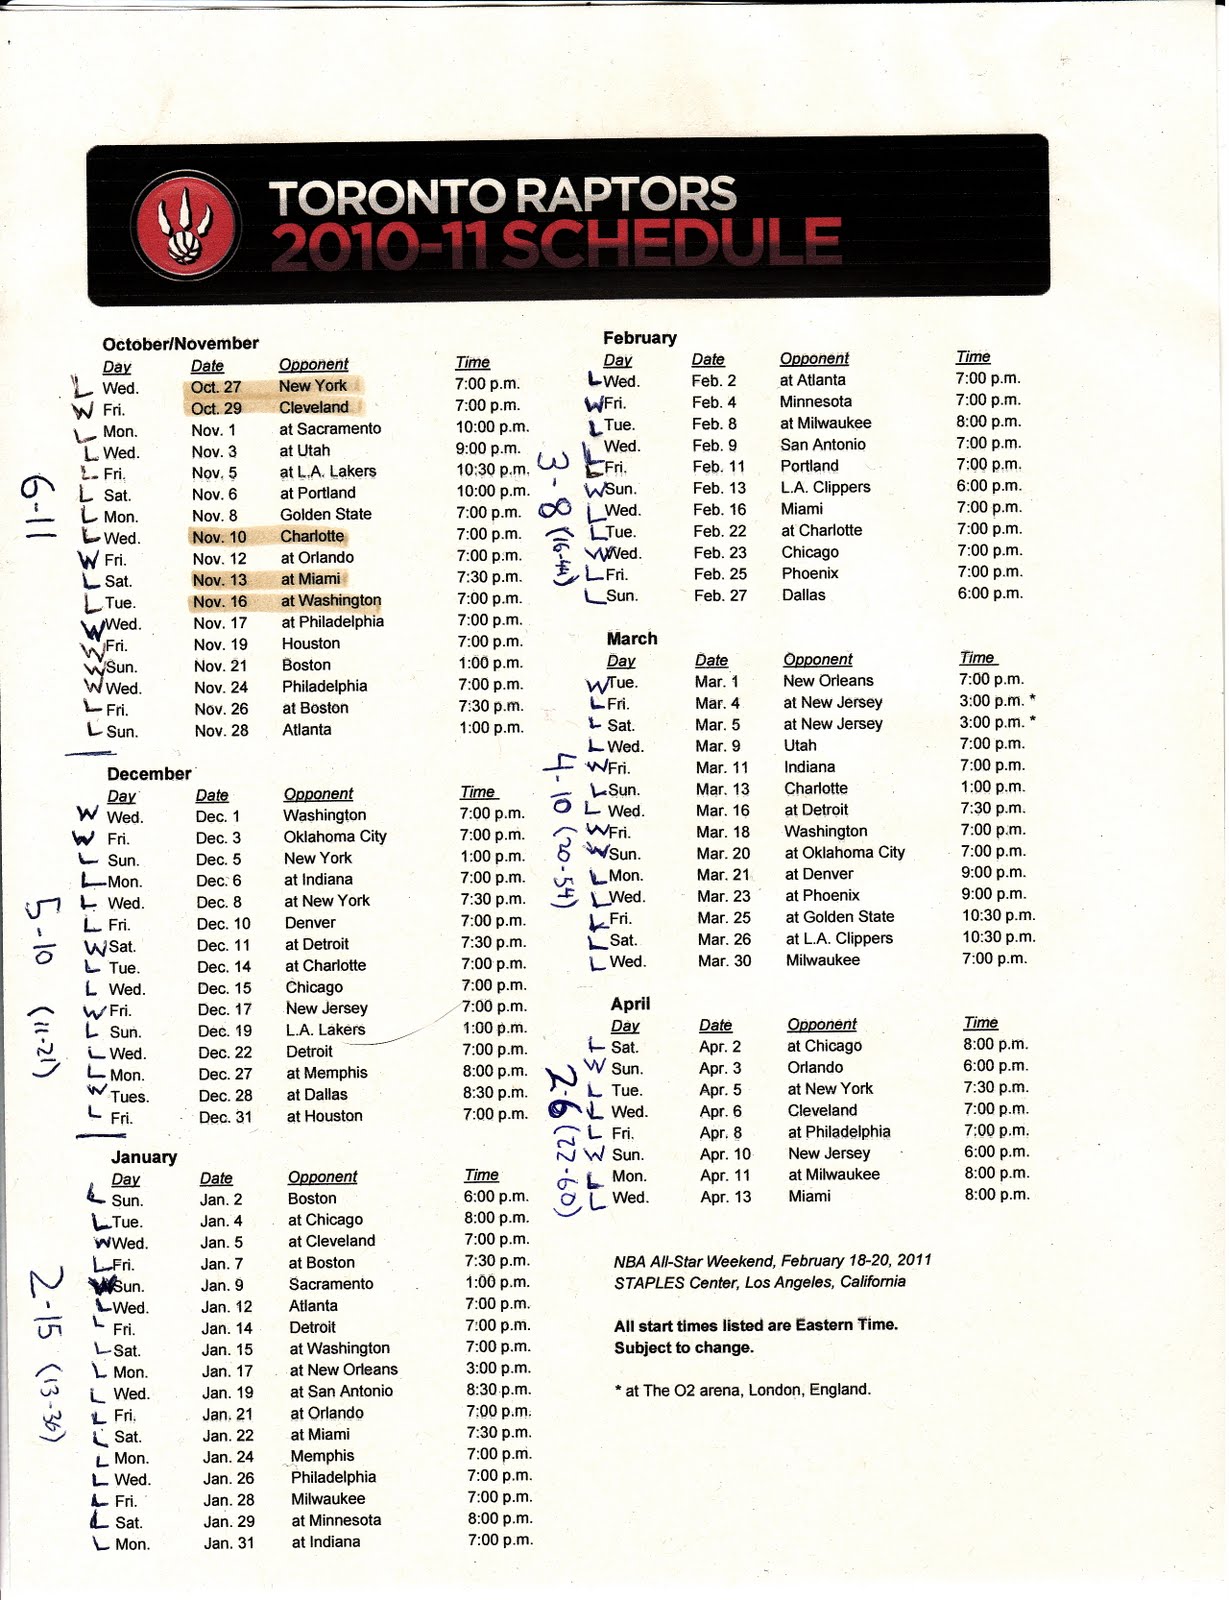 TORONTO RAPTORS
2010-11 SCHEDULE
October/November
Day Date Opponent Time
L Wed. Oct. 27 New York 7:00 p.m.
W Fri. Oct. 29 Cleveland 7:00 p.m.
L Mon. Nov. 1 at Sacramento 10:00 p.m.
L Wed. Nov. 3 at Utah 9:00 p.m.
L Fri. Nov. 5 at L.A. Lakers 10:30 p.m.
L Sat. Nov. 6 at Portland 10:00 p.m.
L Mon. Nov. 8 Golden State 7:00 p.m.
L Wed. Nov. 10 Charlotte 7:00 p.m.
W Fri. Nov. 12 at Orlando 7:00 p.m.
L Sat. Nov. 13 at Miami 7:30 p.m.
L Tue. Nov. 16 at Washington 7:00 p.m.
W Wed. Nov. 17 at Philadelphia 7:00 p.m.
W Fri. Nov. 19 Houston 7:00 p.m.
W Sun. Nov. 21 Boston 1:00 p.m.
W Wed. Nov. 24 Philadelphia 7:00 p.m.
L Fri. Nov. 26 at Boston 7:30 p.m.
L Sun. Nov. 28 Atlanta 1:00 p.m.
6-11
December
Day Date Opponent Time
W Wed. Dec. 1 Washington 7:00 p.m.
W Fri. Dec. 3 Oklahoma City 7:00 p.m.
L Sun. Dec. 5 New York 1:00 p.m.
L Mon. Dec. 6 at Indiana 7:00 p.m.
L Wed. Dec. 8 at New York 7:30 p.m.
L Fri. Dec. 10 Denver 7:00 p.m.
W Sat. Dec. 11 at Detroit 7:30 p.m.
L Tue. Dec. 14 at Charlotte 7:00 p.m.
L Wed. Dec. 15 Chicago 7:00 p.m.
W Fri. Dec. 17 New Jersey 7:00 p.m.
L Sun. Dec. 19 L.A. Lakers 1:00 p.m.
L Wed. Dec. 22 Detroit 7:00 p.m.
L Mon. Dec. 27 at Memphis 8:00 p.m.
W Tues. Dec. 28 at Dallas 8:30 p.m.
L Fri. Dec. 31 at Houston 7:00 p.m.
5-10 (11-21)
January
Day Date Opponent Time
L Sun. Jan. 2 Boston 6:00 p.m.
L Tue. Jan. 4 at Chicago 8:00 p.m.
W Wed. Jan. 5 at Cleveland 7:00 p.m.
L Fri. Jan. 7 at Boston 7:30 p.m.
W Sun. Jan. 9 Sacramento 1:00 p.m.
L Wed. Jan. 12 Atlanta 7:00 p.m.
L Fri. Jan. 14 Detroit 7:00 p.m.
L Sat. Jan. 15 at Washington 7:00 p.m.
L Mon. Jan. 17 at New Orleans 3:00 p.m.
L Wed. Jan. 19 at San Antonio 8:30 p.m.
L Fri. Jan. 21 at Orlando 7:00 p.m.
L Sat. Jan. 22 at Miami 7:30 p.m.
L Mon. Jan. 24 Memphis 7:00 p.m.
L Wed. Jan. 26 Philadelphia 7:00 p.m.
L Fri. Jan. 28 Milwaukee 7:00 p.m.
L Sat. Jan. 29 at Minnesota 8:00 p.m.
L Mon. Jan. 31 at Indiana 7:00 p.m.
2-15 (13-36)
February
Day Date Opponent Time
L Wed. Feb. 2 at Atlanta 7:00 p.m.
W Fri. Feb. 4 Minnesota 7:00 p.m.
L Tue. Feb. 8 at Milwaukee 8:00 p.m.
L Wed. Feb. 9 San Antonio 7:00 p.m.
L Fri. Feb. 11 Portland 7:00 p.m.
W Sun. Feb. 13 L.A. Clippers 6:00 p.m.
L Wed. Feb. 16 Miami 7:00 p.m.
L Tue. Feb. 22 at Charlotte 7:00 p.m.
W Wed. Feb. 23 Chicago 7:00 p.m.
L Fri. Feb. 25 Phoenix 7:00 p.m.
L Sun. Feb. 27 Dallas 6:00 p.m.
3-8 (16-44)
March
Day Date Opponent Time
W Tue. Mar. 1 New Orleans 7:00 p.m.
L Fri. Mar. 4 at New Jersey 3:00 p.m. *
L Sat. Mar. 5 at New Jersey 3:00 p.m. *
L Wed. Mar. 9 Utah 7:00 p.m.
W Fri. Mar. 11 Indiana 7:00 p.m.
L Sun. Mar. 13 Charlotte 1:00 p.m.
L Wed. Mar. 16 at Detroit 7:30 p.m.
W Fri. Mar. 18 Washington 7:00 p.m.
W Sun. Mar. 20 at Oklahoma City 7:00 p.m.
L Mon. Mar. 21 at Denver 9:00 p.m.
L Wed. Mar. 23 at Phoenix 9:00 p.m.
L Fri. Mar. 25 at Golden State 10:30 p.m.
L Sat. Mar. 26 at L.A. Clippers 10:30 p.m.
L Wed. Mar. 30 Milwaukee 7:00 p.m.
4-10 (20-54)
April
Day Date Opponent Time
L Sat. Apr. 2 at Chicago 8:00 p.m.
W Sun. Apr. 3 Orlando 6:00 p.m.
L Tue. Apr. 5 at New York 7:30 p.m.
L Wed. Apr. 6 Cleveland 7:00 p.m.
L Fri. Apr. 8 at Philadelphia 7:00 p.m.
W Sun. Apr. 10 New Jersey 6:00 p.m.
L Mon. Apr. 11 at Milwaukee 8:00 p.m.
L Wed. Apr. 13 Miami 8:00 p.m.
2-6 (22-60)
NBA All-Star Weekend, February 18-20, 2011
STAPLES Center, Los Angeles, California
All start times listed are Eastern Time.
Subject to change.
* at The O2 arena, London, England.